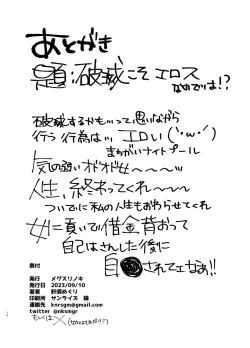 あとがき
題:破滅こそエロス
なのでは!?
破滅するかも…って思いながら
行う行為は…エロい(´･ω･`)
まちがいナイトプール
気の弱いオドオド女～～～
人生、終わってくれ～～～
ついでに私の人生もおわらせてくれ
女に貢いで借金背おって
自己はさんした後に
自●されてエなあ!!
奥付
発行 メグスリノキ
発行日 2023/09/10
著者 肝硬めぐり
印刷所 サンライズ 様
連絡先 knrsgm@gmail.com
twitter @nksmgr
もしくはX